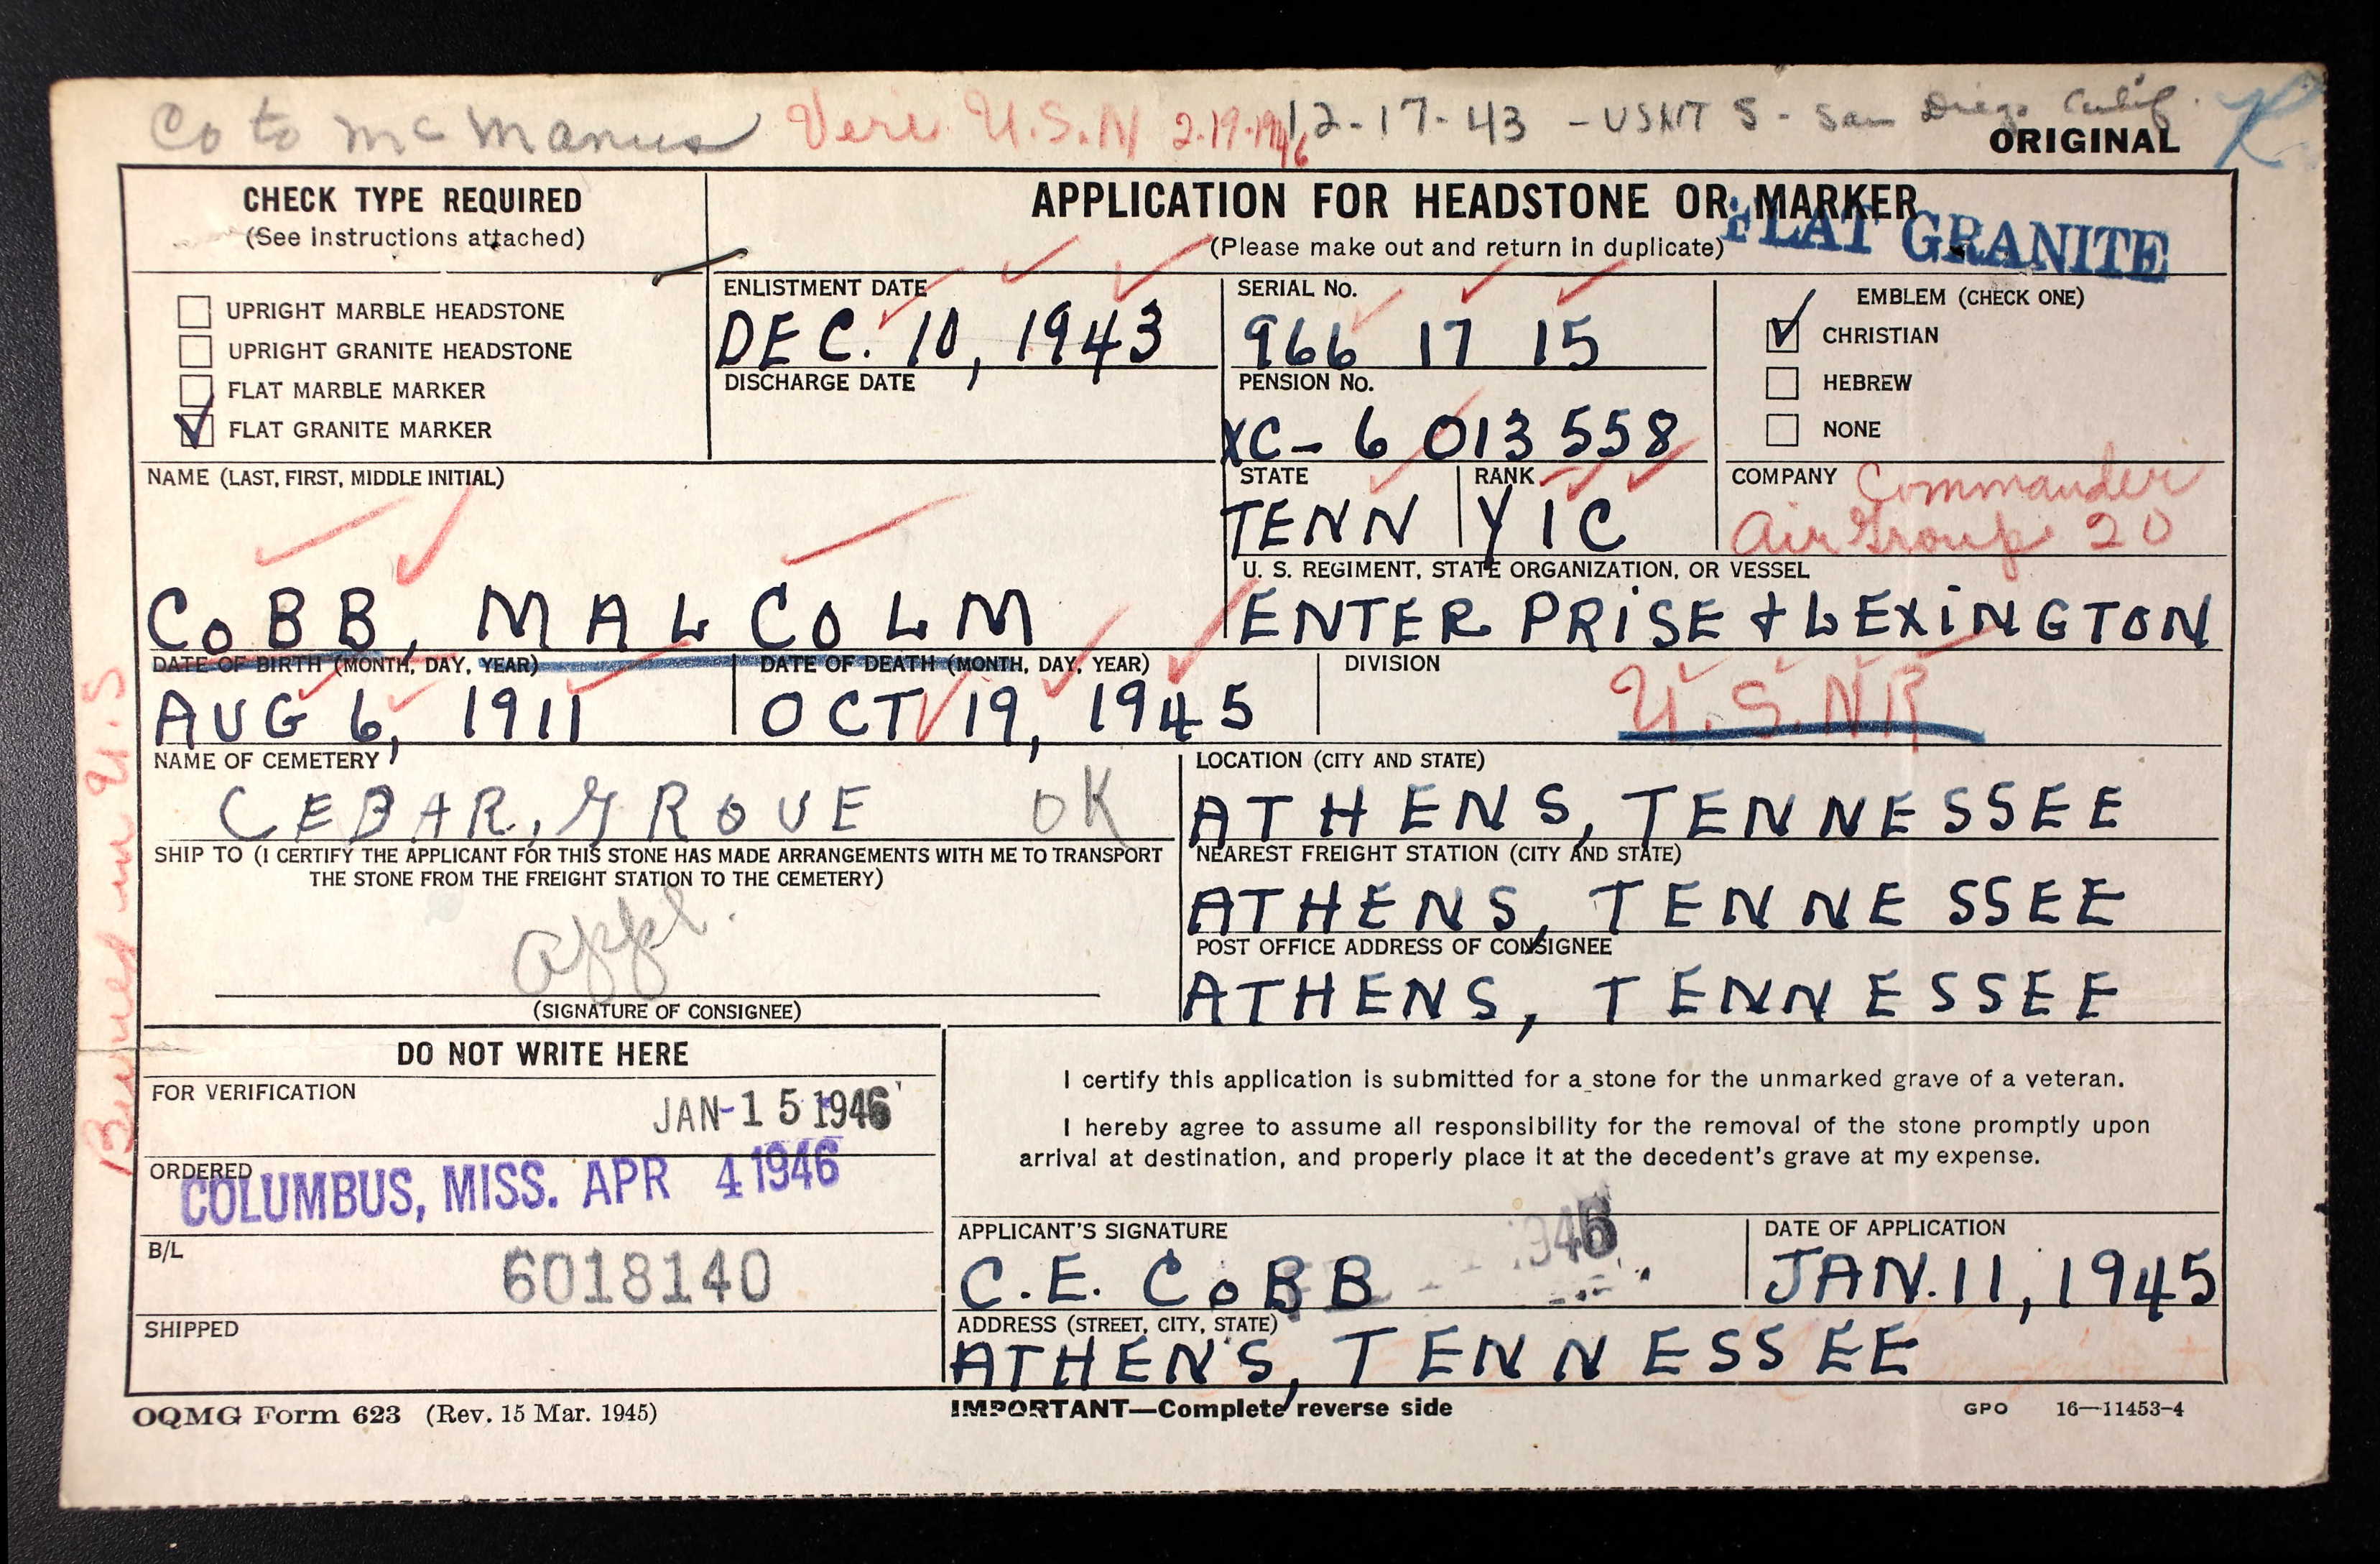 Co to McManus Veri U.S.N 2-19-1946 12-17-43 - USNTS - San Diego Calif.
ORIGINAL
CHECK TYPE REQUIRED
(See instructions attached)
UPRIGHT MARBLE HEADSTONE
UPRIGHT GRANITE HEADSTONE
FLAT MARBLE MARKER
FLAT GRANITE MARKER
APPLICATION FOR HEADSTONE OR MARKER
(Please make out and return in duplicate)
FLAT GRANITE
ENLISTMENT DATE
DEC. 10, 1943
DISCHARGE DATE
SERIAL No.
966 17 15
PENSION No.
XC- 6 013 558
EMBLEM (CHECK ONE)
CHRISTIAN
HEBREW
NONE
NAME (LAST, FIRST, MIDDLE INITIAL)
COBB, MALCOLM
STATE
TENN
RANK
Y1C
COMPANY Commander
Air Group 20
U. S. REGIMENT, STATE ORGANIZATION, OR VESSEL
ENTERPRISE + LEXINGTON
DATE OF BIRTH (MONTH, DAY, YEAR)
AUG 6, 1911
DATE OF DEATH (MONTH, DAY, YEAR)
OCT 19, 1945
DIVISION
U.S.NR
NAME OF CEMETERY
CEDAR, GROVE OK
LOCATION (CITY AND STATE)
ATHENS, TENNESSEE
SHIP TO (I CERTIFY THE APPLICANT FOR THIS STONE HAS MADE ARRANGEMENTS WITH ME TO TRANSPORT
THE STONE FROM THE FREIGHT STATION TO THE CEMETERY)
appl.
(SIGNATURE OF CONSIGNEE)
NEAREST FREIGHT STATION (CITY AND STATE)
ATHENS, TENNESSEE
POST OFFICE ADDRESS OF CONSIGNEE
ATHENS, TENNESSEE
Buried in U.S
DO NOT WRITE HERE
FOR VERIFICATION
JAN-15 1946
ORDERED
COLUMBUS, MISS. APR 4 1946
B/L
6018140
SHIPPED
I certify this application is submitted for a stone for the unmarked grave of a veteran.
I hereby agree to assume all responsibility for the removal of the stone promptly upon
arrival at destination, and properly place it at the decedent's grave at my expense.
APPLICANT'S SIGNATURE
C.E. COBB
DATE OF APPLICATION
JAN. 11, 1945
ADDRESS (STREET, CITY, STATE)
ATHENS, TENNESSEE
OQMG Form 623 (Rev. 15 Mar. 1945)
IMPORTANT—Complete reverse side
GPO 16—11453-4